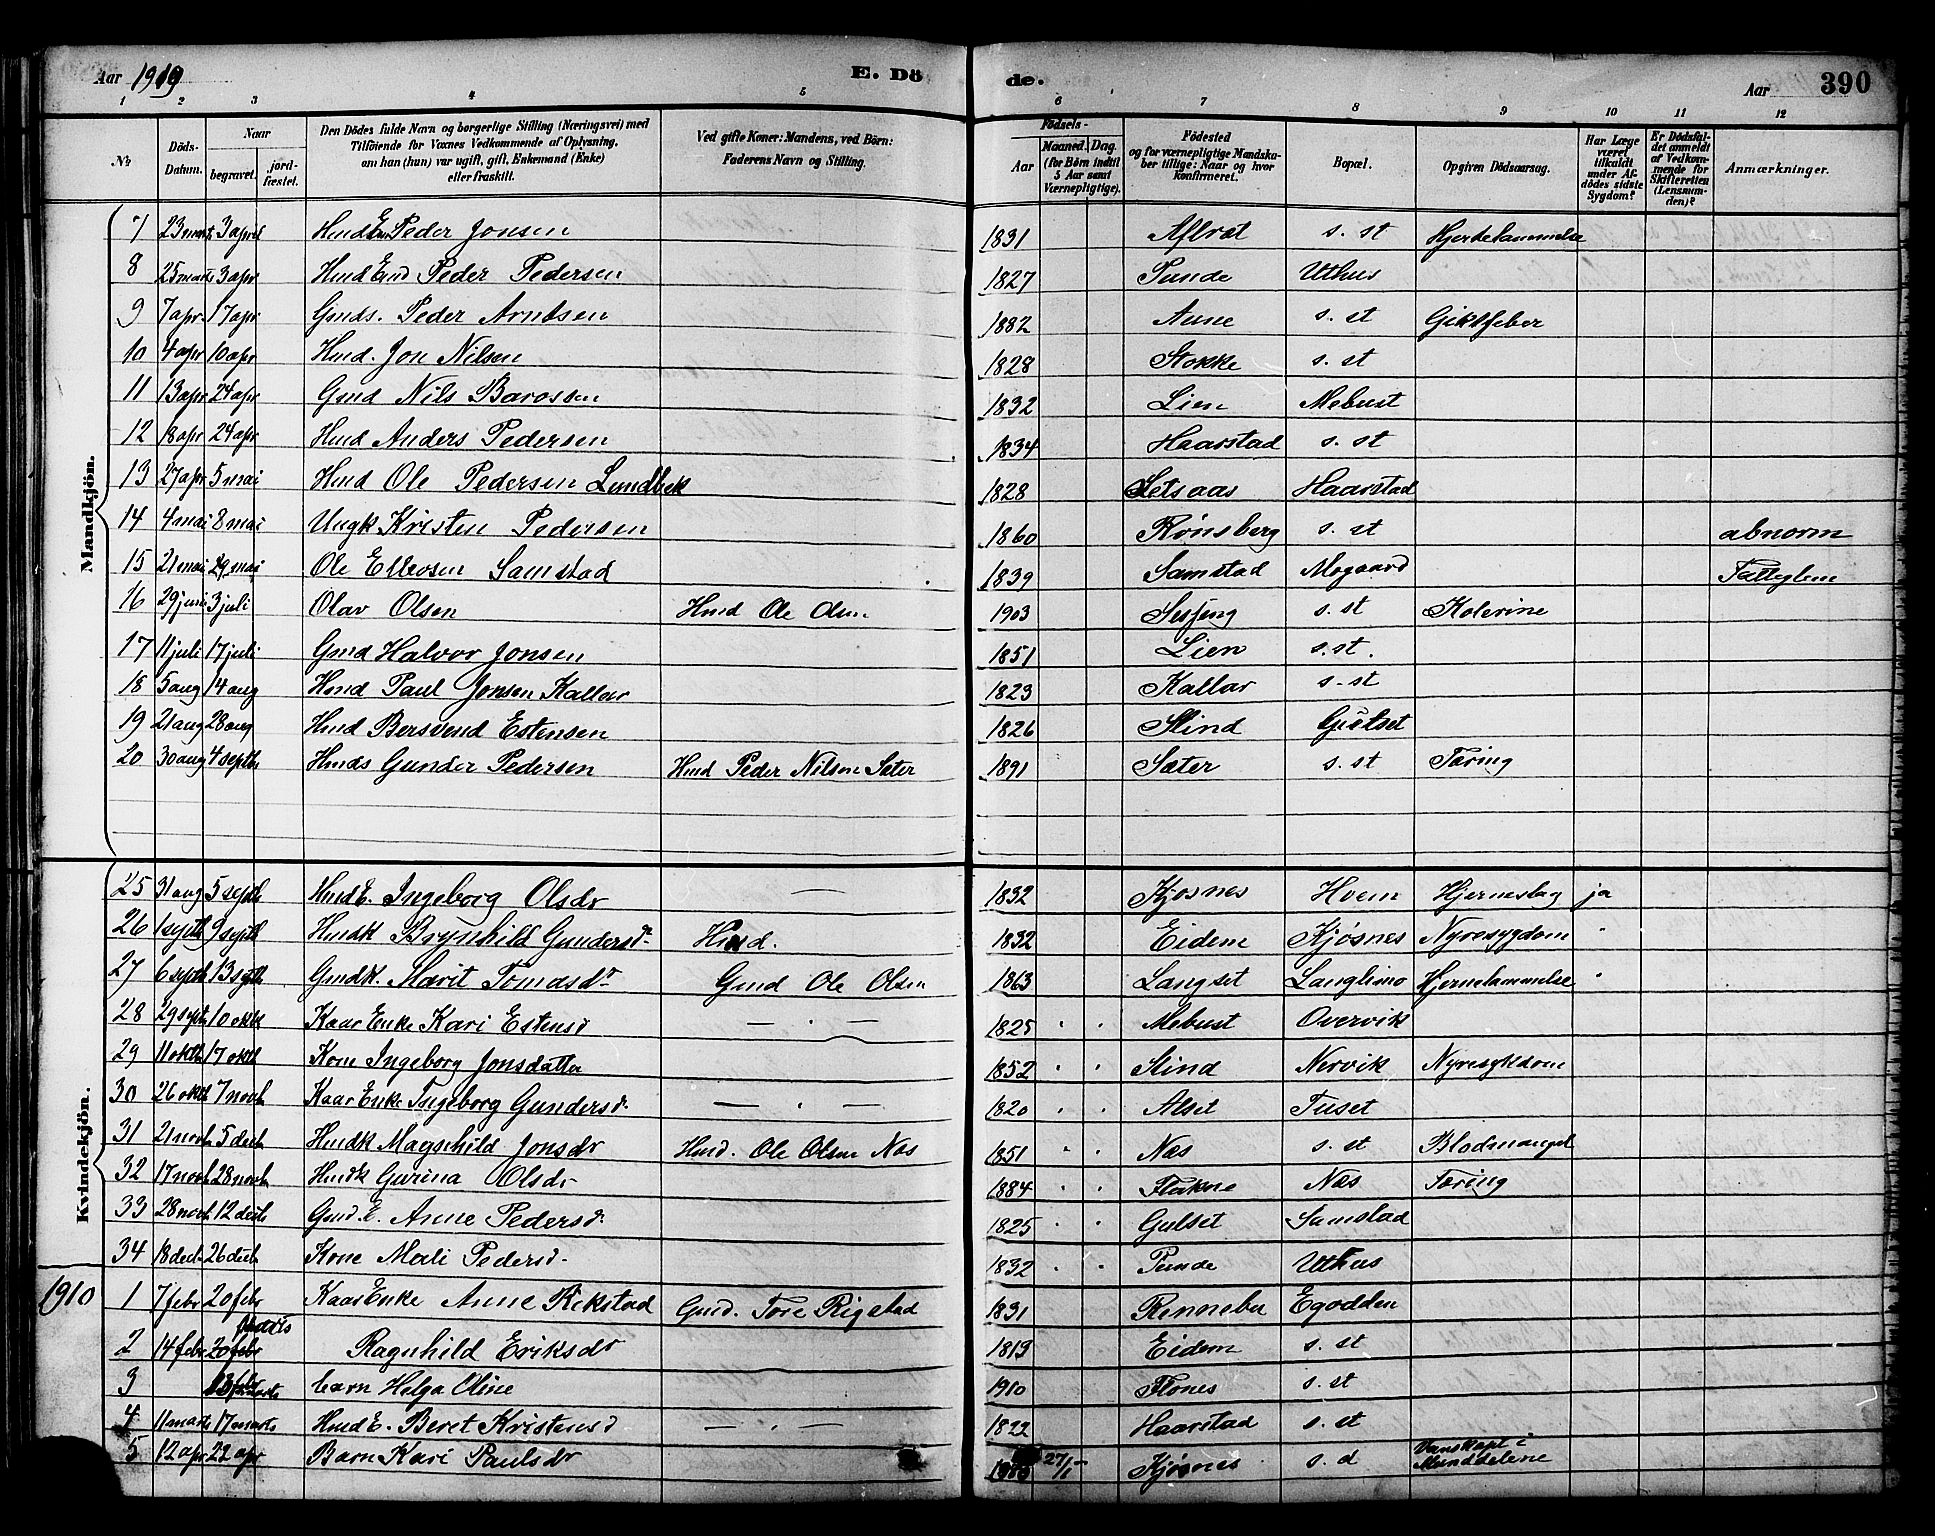 Aar 1910 E. Dö de. Aar 390
1 2 3 4 5 6 7 8 9 10 11 12
No
Döds-Datum.
Naar
begravet.
jordfæstet.
Den Dödes fulde Navn og borgerlige Stilling (Næringsvei) med
Tilföiende for Voxnes Vedkommende af Oplysning,
om han (hun) var ugift, gift, Enkemand (Enke)
eller fraskilt.
Ved gifte Koner: Mandens, ved Börn:
Faderens Navn og Stilling.
Födsels-
Aar
Maaned. Dag.
(for Börn indtil
5 Aar samt
Værnepligtige).
Födested
og for værnepligtige Mandska-
ber tillige: Naar og hvor
konfirmeret.
Bopæl.
Opgiven Dödsaarsag.
Har Læge
været
tilkaldt
under Af-
dödes sidste
Sygdom?
Er Dödsfal-
det anmeldt
af Vedkom-
mende for
Skifteretten
(Lensman-
den)?
Anmærkninger.
Mandkjön.
7 23 marts 3 april Hmd Enk Peder Jonsen 1831 Aflvat s. st Hjertelammelse
8 25 marts 3 apr Hmd Enk Peder Pedersen 1827 Punde Utthus
9 7 apr 17 apr Gmds. Peder Arntsen 1882 Aune s. st Giktfeber
10 4 apr 10 apr Hmd. Jon Nilsen 1828 Stokke s. st
11 13 apr 24 apr Gmd Nils Barossen 1832 Lien Mebust
12 18 apr 24 apr Hmd Anders Pedersen 1834 Haarstad s. st
13 27 apr 5 mai Hmd Ole Pedersen Lundbek 1828 Letsaas Haarstad
14 4 mai 8 mai Ungk Kristen Pedersen 1860 Rønsberg s. st abnorm
15 21 mai 29 mai Ole Ellevsen Samstad 1839 Samstad Mogaard Fattiglem
16 29 juni 3 juli Olav Olsen Hmd Ole Olsen 1903 Sesseng s. st Kolerine
17 11 juli 17 juli Gmd Halvor Jonsen 1851 Lien s. st.
18 5 aug 14 aug Hmd Paul Jonsen Kallar 1823 Kallar s. st
19 21 aug 28 aug Hmd Bersvend Estensen 1826 Slind Gulset
20 30 aug 4 septbr Hmds Gunder Pedersen Hmd Peder Nilsen Sæter 1891 Sæter s. st Tæring
Kvindekjön.
25 31 aug 5 septb Hmd E. Ingeborg Olsdr — 1832 Kjøsnes Hvem Hjerneslag ja
26 1 septb 9 septb Hmdk Brynhild Gundersdr Hmd. 1832 Eidem Kjøsnes Nyresygdom "
27 6 septb 13 septb Gmdk. Marit Tomasdr Gmd Ole Olsen 1863 Langset Langlimo Hjernelammelse "
28 29 septb 10 oktb Kaar Enke Kari Estensd — " — 1825 " " Mebust Overvik
29 11 oktb 17 oktb Kone Ingeborg Jonsdatter 1852 " " Slind Nervik Nyresykdom
30 26 oktb 7 novb Kaar Enke Ingeborg Gundersd. — " — 1820 " " Alset Tuset
31 21 novb 5 decb Hmdk Magnhild Jonsdr Hmd. Ole Olsen Næs 1851 " " Næs s. st Blodmangel
32 17 novb 28 novb Hmdk Gurina Olsdr 1884 " " Flakne Næs Tæring
33 28 novb 12 decb Gmd. E. Anne Pedersdr 1825 " " Gulset Samstad
34 18 decb 26 decb Kone Mali Pedersd. 1832 " " Punde Utthus
1910 1 7 febr 20 febr Kaar Enke Anne Rikstad Gmd. Tore Rigstad 1831 Rennebu Egodden
2 14 febr 20 febr Ragnhild Eriksdr 1819 Eidem s. st
3 13 marts barn Helga Oline 1910 Flønes s. st
4 11 marts 17 marts Hmd E. Beret Kristensd — " — 1822 Haarstad s. st
5 12 apr 22 apr Barn Kari Paulsdr 27/1 Kjøsnes s. d Vanskapt i
Munddelene